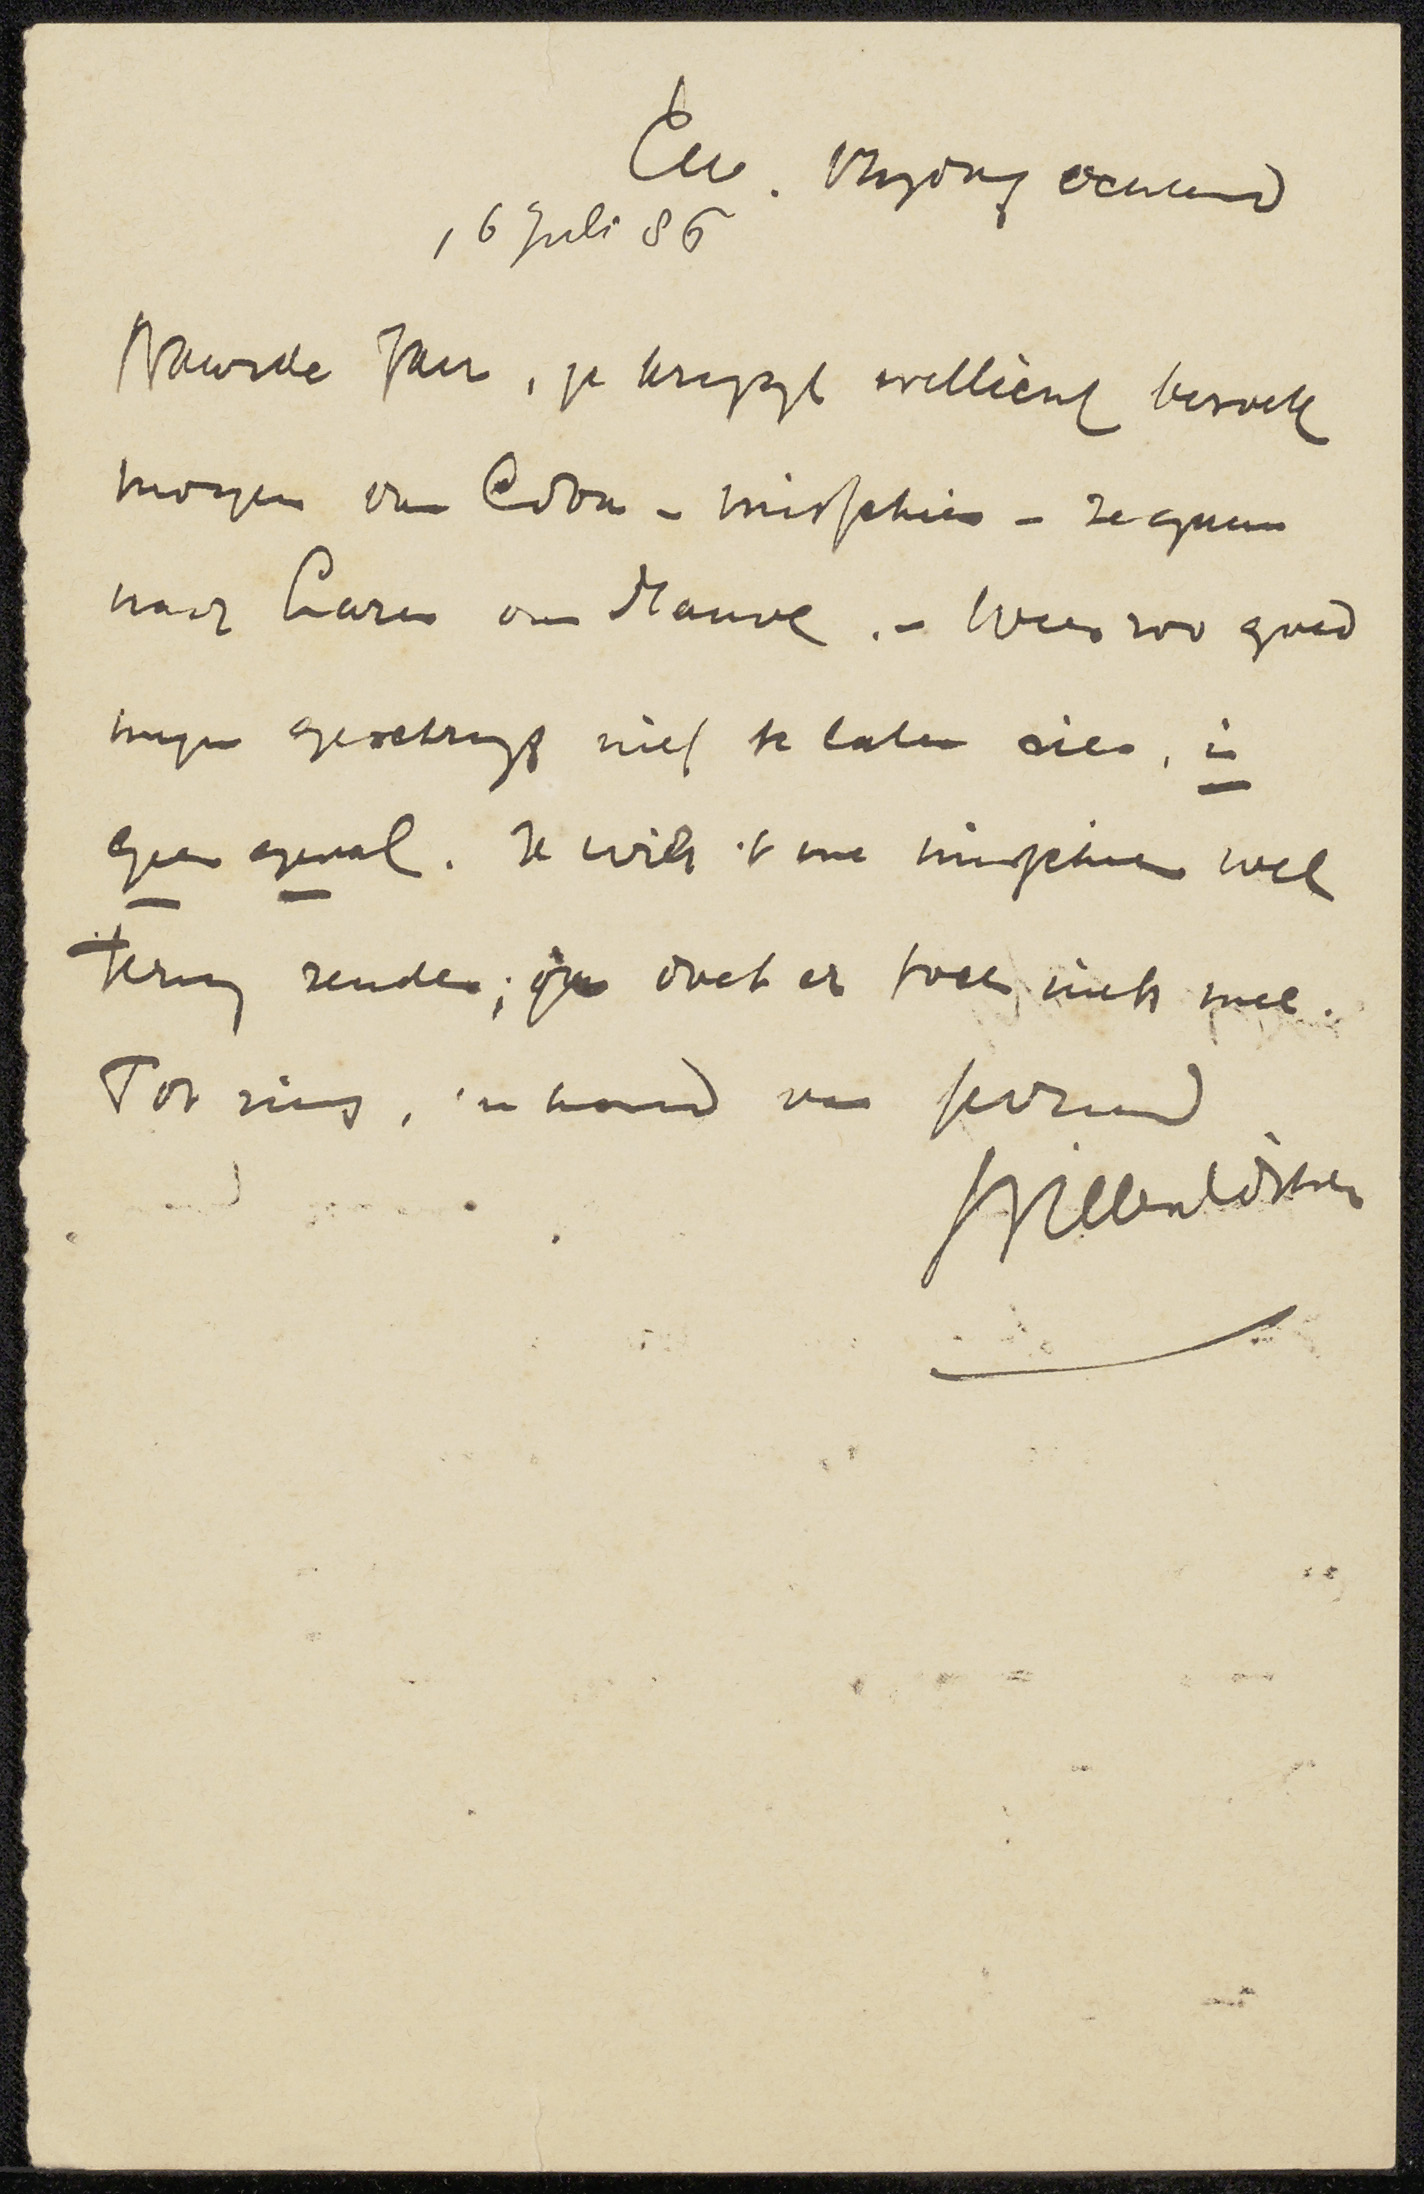 Ede. Vrydag ochtend
16 Juli 86
Waarde Jan, je krygt wellicht bezoek
morgen van Edon - misschien - ze gaan
naar Laren om Mauve. - Wees zoo goed
myn geschryf niet te laten zien, in
geen geval. Je wilt 't me misschien wel
terug zenden; je doet er toch niets mee.
Tot ziens, 'n hand van je vriend
Willem Witsen